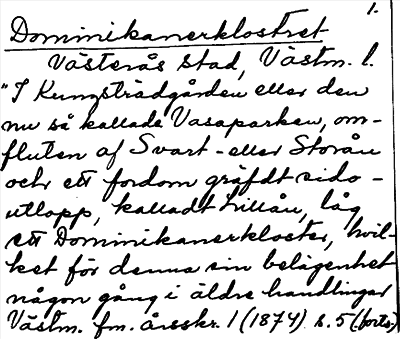 1.
Dominikanerklostret
Västerås stad, Västm. l.
"I Kungsträdgården eller den
nu så kallade Vasaparken, om-
fluten af Svart- eller Storån
och ett fordom gräfdt sido-
utlopp, kalladt Lillån, låg
ett Dominikanerkloster, hvil-
ket för denna sin belägenhet
någon gång i äldre handlingar
Västm. fm. årsskr. 1 (1874) s. 5 (forts.)